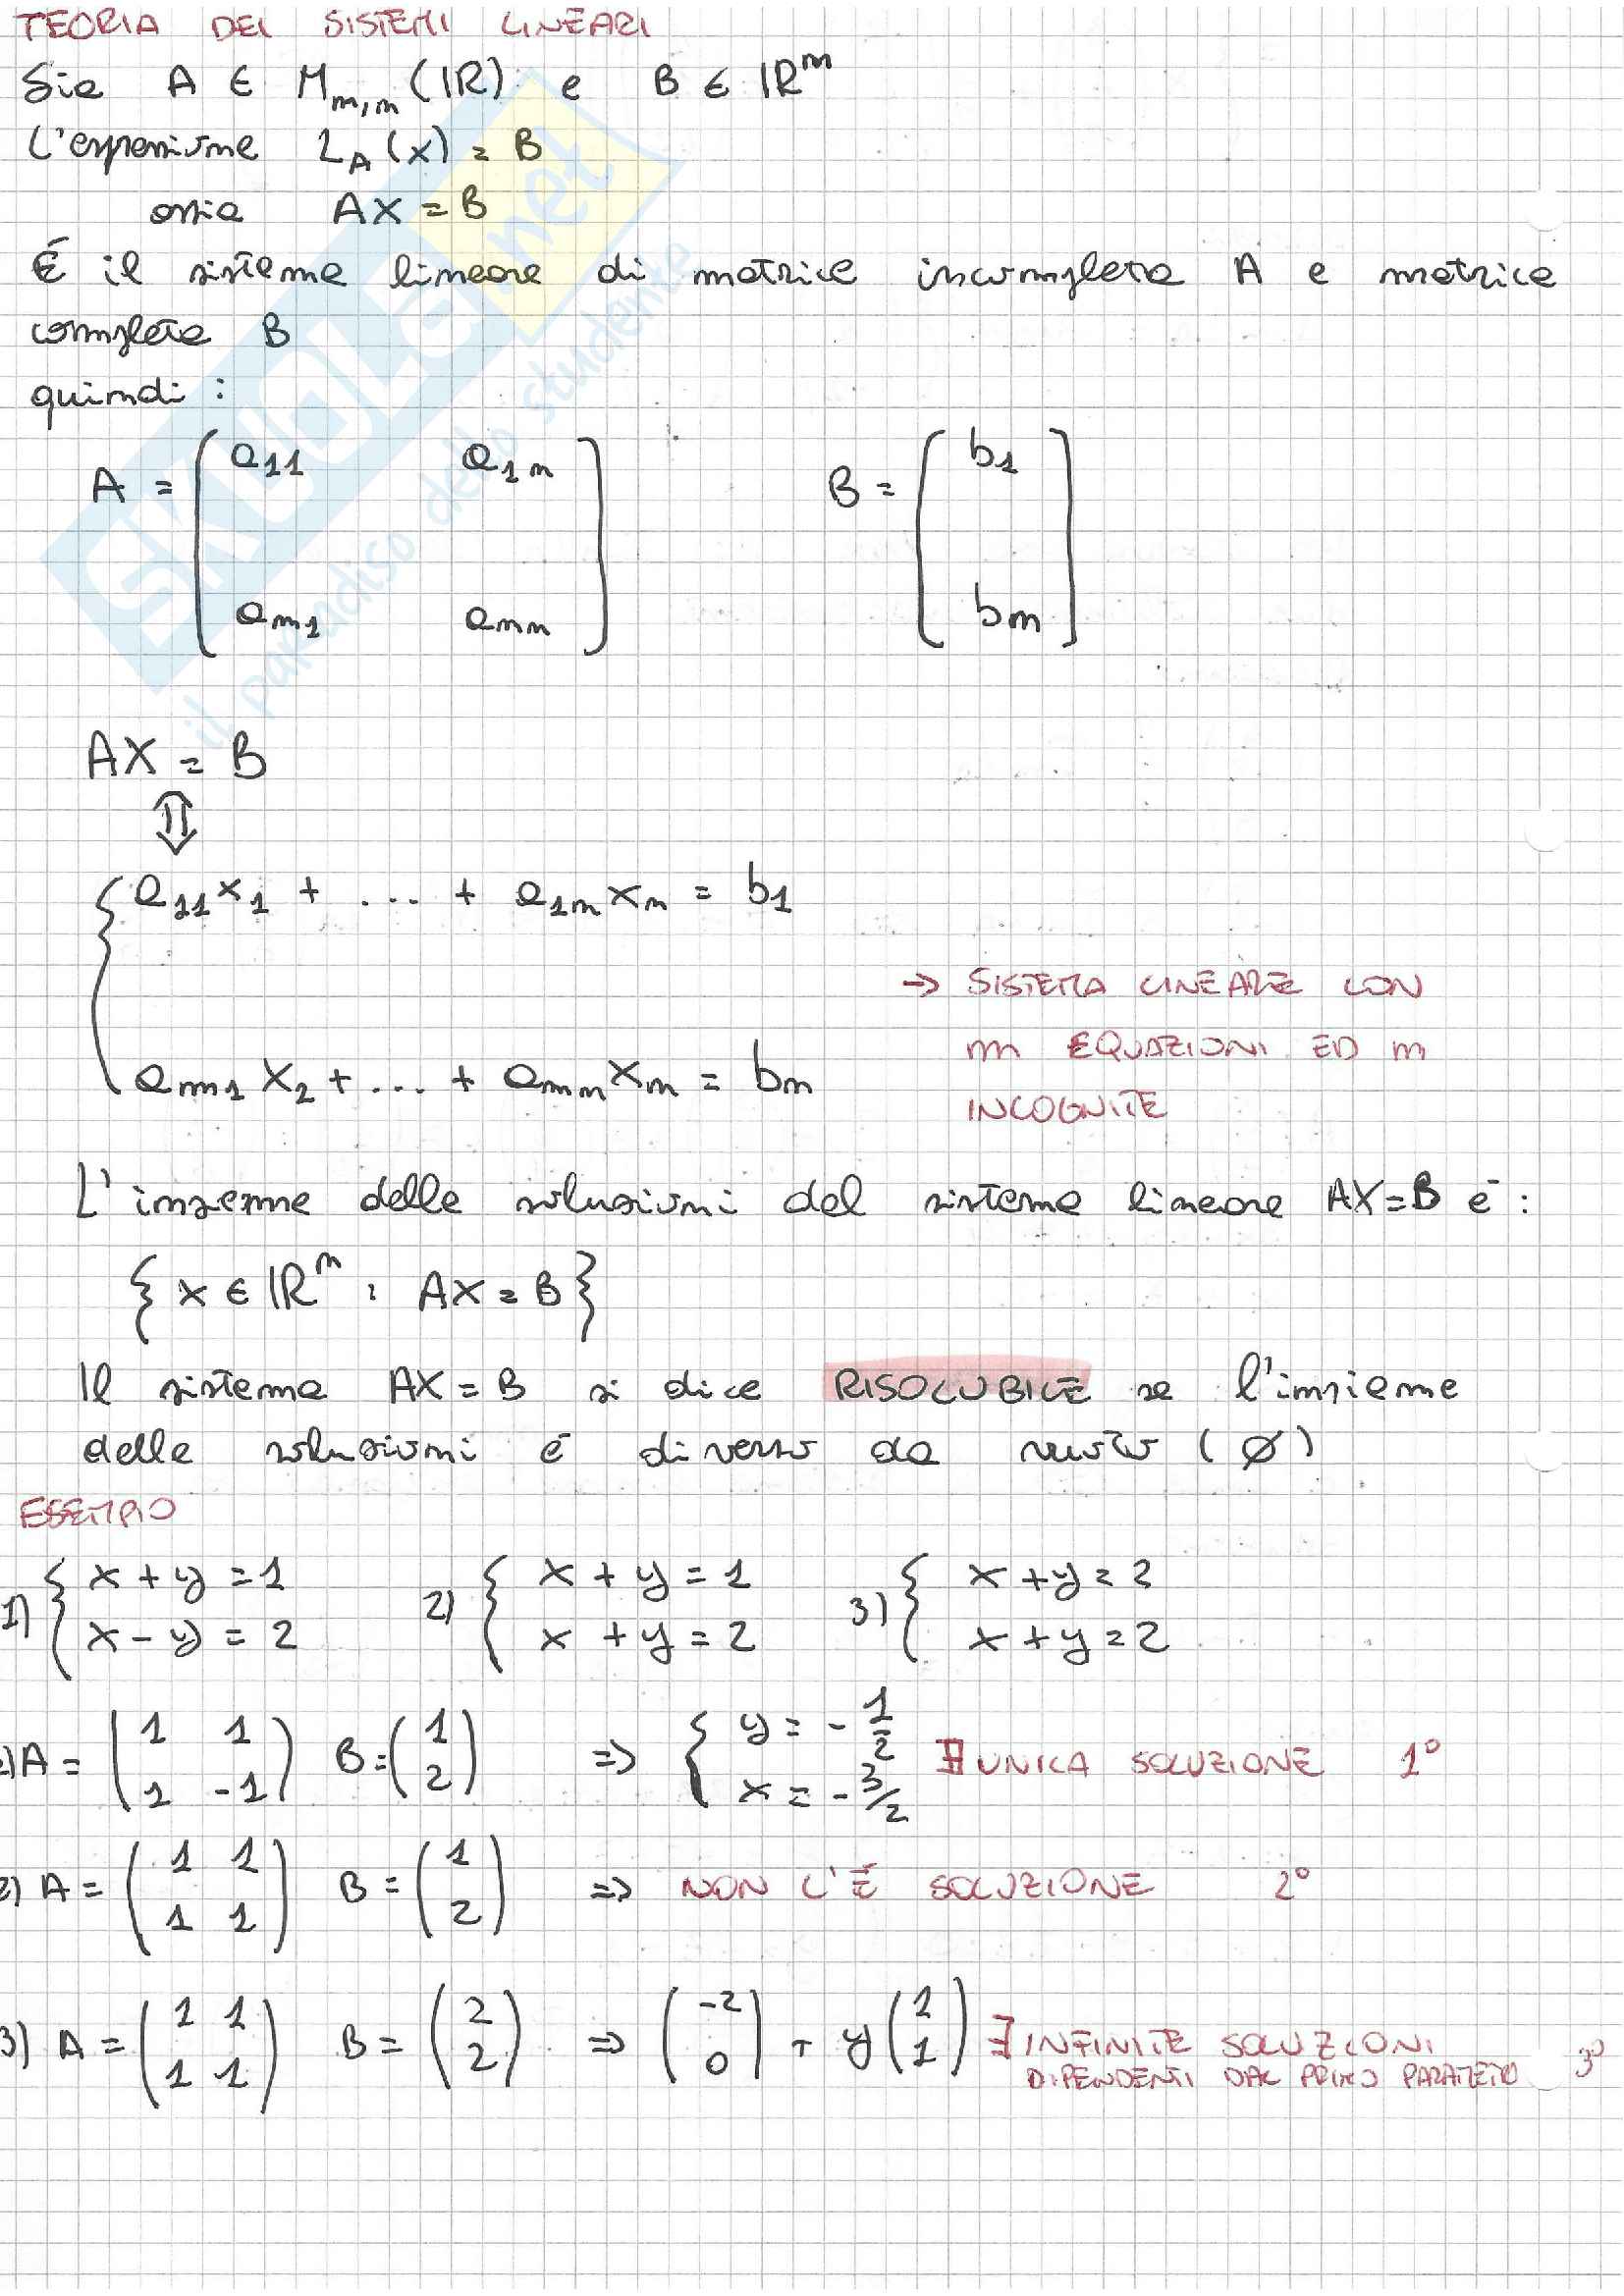 TEORIA DEI SISTEMI LINEARI
Sia A ∈ M_{m,n} (ℝ) e B ∈ ℝ^m
L'espressione L_A (x) = B
ossia AX = B
È il sistema lineare di matrice incompleta A e matrice
completa B
quindi :
A = ( a_{11} a_{1n} B = ( b_1
a_{m1} a_{mn} ) b_m )
AX = B
⇕
{ a_{11} x_1 + ... + a_{1n} x_n = b_1
→ SISTEMA LINEARE CON
m EQUAZIONI ED n
INCOGNITE
a_{m1} x_2 + ... + a_{mn} x_n = b_m
L'insieme delle soluzioni del sistema lineare AX=B è :
{ x ∈ ℝ^n : AX = B }
Il sistema AX = B si dice RISOLUBILE se l'insieme
delle soluzioni è diverso da vuoto ( ∅ )
ESEMPIO
1) { x + y = 1 2) { x + y = 1 3) { x + y = 2
x - y = 2 x + y = 2 x + y = 2
1) A = ( 1 1 B = ( 1 ⇒ { y = - 1/2 ∃ UNICA SOLUZIONE 1°
1 -1 ) 2 ) x = - 3/2
2) A = ( 1 1 B = ( 1 ⇒ NON C'È SOLUZIONE 2°
1 1 ) 2 )
3) A = ( 1 1 B = ( 2 ⇒ ( -2 + y ( 1 ∃ INFINITE SOLUZIONI 3°
1 1 ) 2 ) 0 ) 1 ) DIPENDENTI DAL PRIMO PARAMETRO
SKUOLA.net
il paradiso dello studente